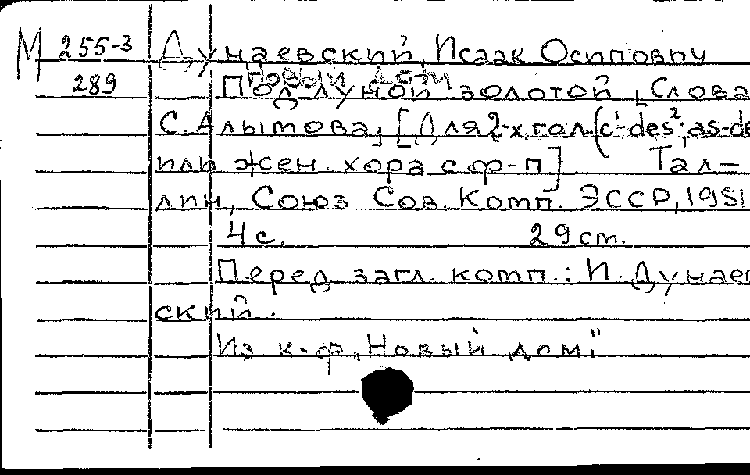 М 255-3 Дунаевский, Исаак Осипович
289 Под луной золотой, Слова
С. Алымова, [Для 2-х гол. (c'-des²; as-de
или жен. хора с ф-п] Тал-
лин, Союз Сов. Комп. ЭССР, 1951
4 с. 29 cm.
Перед загл. комп.: И. Дунаев
ский.
Из к-ф „Новый дом."